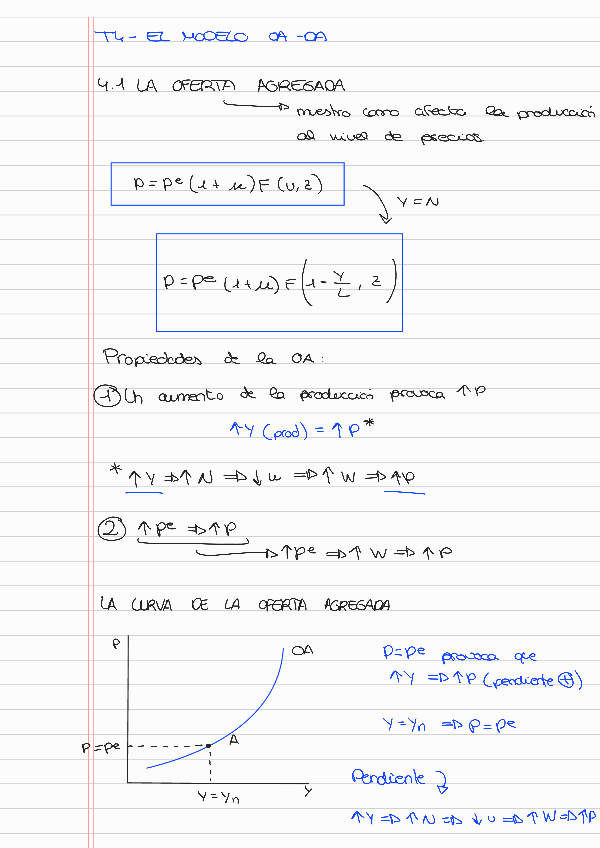 T4- EL MODELO OA-DA
4.1 LA OFERTA AGREGADA
muestra como afecta la producción
al nivel de precios
P = Pᵉ (1 + μ) F (u, z)
Y = N
P = Pᵉ (1 + μ) F (1 - Y/L , z)
Propiedades de la OA:
① Un aumento de la producción provoca ↑ P
↑Y (prod) = ↑ P *
* ↑ Y ⇒ ↑ N ⇒ ↓ u ⇒ ↑ W ⇒ ↑P
② ↑ Pᵉ ⇒ ↑ P
↑ Pᵉ ⇒ ↑ W ⇒ ↑ P
LA CURVA DE LA OFERTA AGREGADA
P
OA
P = Pᵉ
A
Y = Yn
Y
P = Pᵉ provoca que
↑ Y ⇒ ↑ P (pendiente ⊕)
Y = Yn ⇒ P = Pᵉ
Pendiente
↑ Y ⇒ ↑ N ⇒ ↓ u ⇒ ↑ W ⇒ ↑P